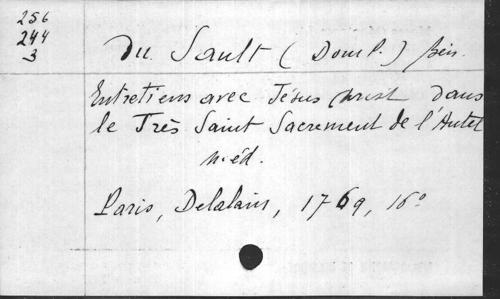 256
244
3
Du Sault (Dom P.) bén.
Entretiens avec Jésus Christ dans
le Très Saint Sacrement de l'Autel
n. éd.
Paris, Delalain, 1769, 16°